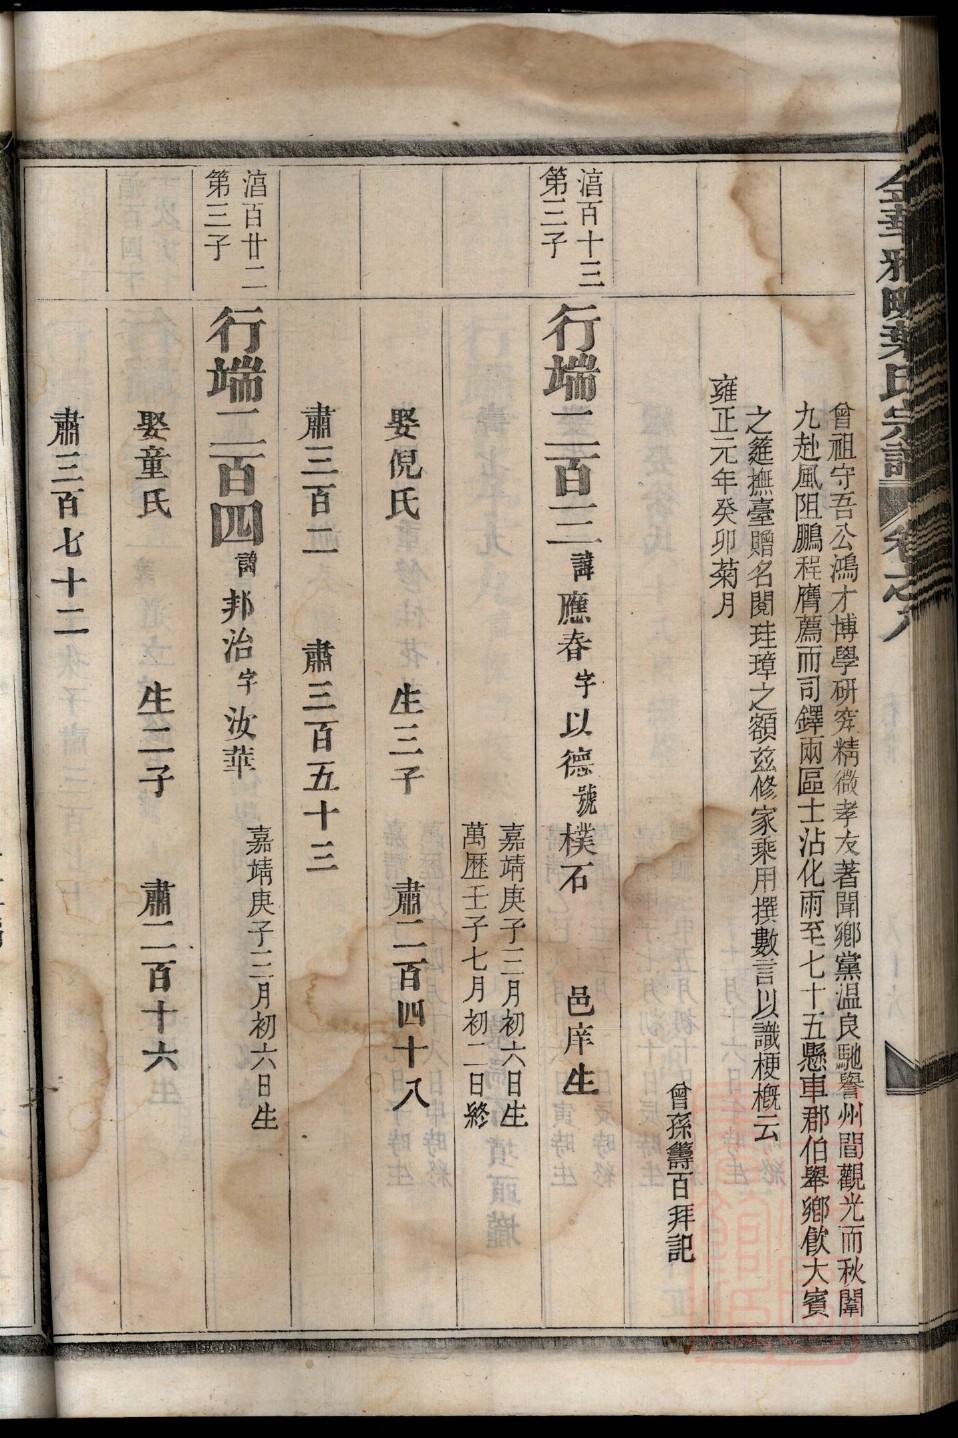 曾祖守吾公鴻才博學研究精微孝友著聞鄉黨温良馳譽州閭觀光而秋闈
九赴風阻鵬程膺薦而司鐸兩區士沾化雨至七十五懸車郡伯舉鄉飲大賓
之筵撫臺贈名閥珪璋之額玆修家乘用撰數言以識梗概云
雍正元年癸卯菊月
曾孫籌百拜記
湻百十三
第三子
行端二百三諱應春字以德號樸石 邑庠生
嘉靖庚子二月初六日生
萬歷壬子七月初二日終
娶倪氏 生三子 肅二百四十八
肅三百二 肅三百五十三
湻百廿二
第三子
行端二百四諱邦治字汝華
嘉靖庚子三月初六日生
娶童氏 生二子 肅二百十六
肅三百七十二